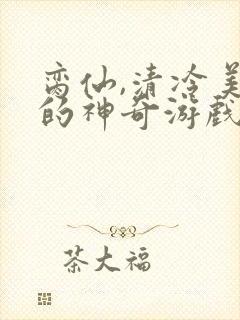 高仙,清冷美
的神奇游戏
茶大福